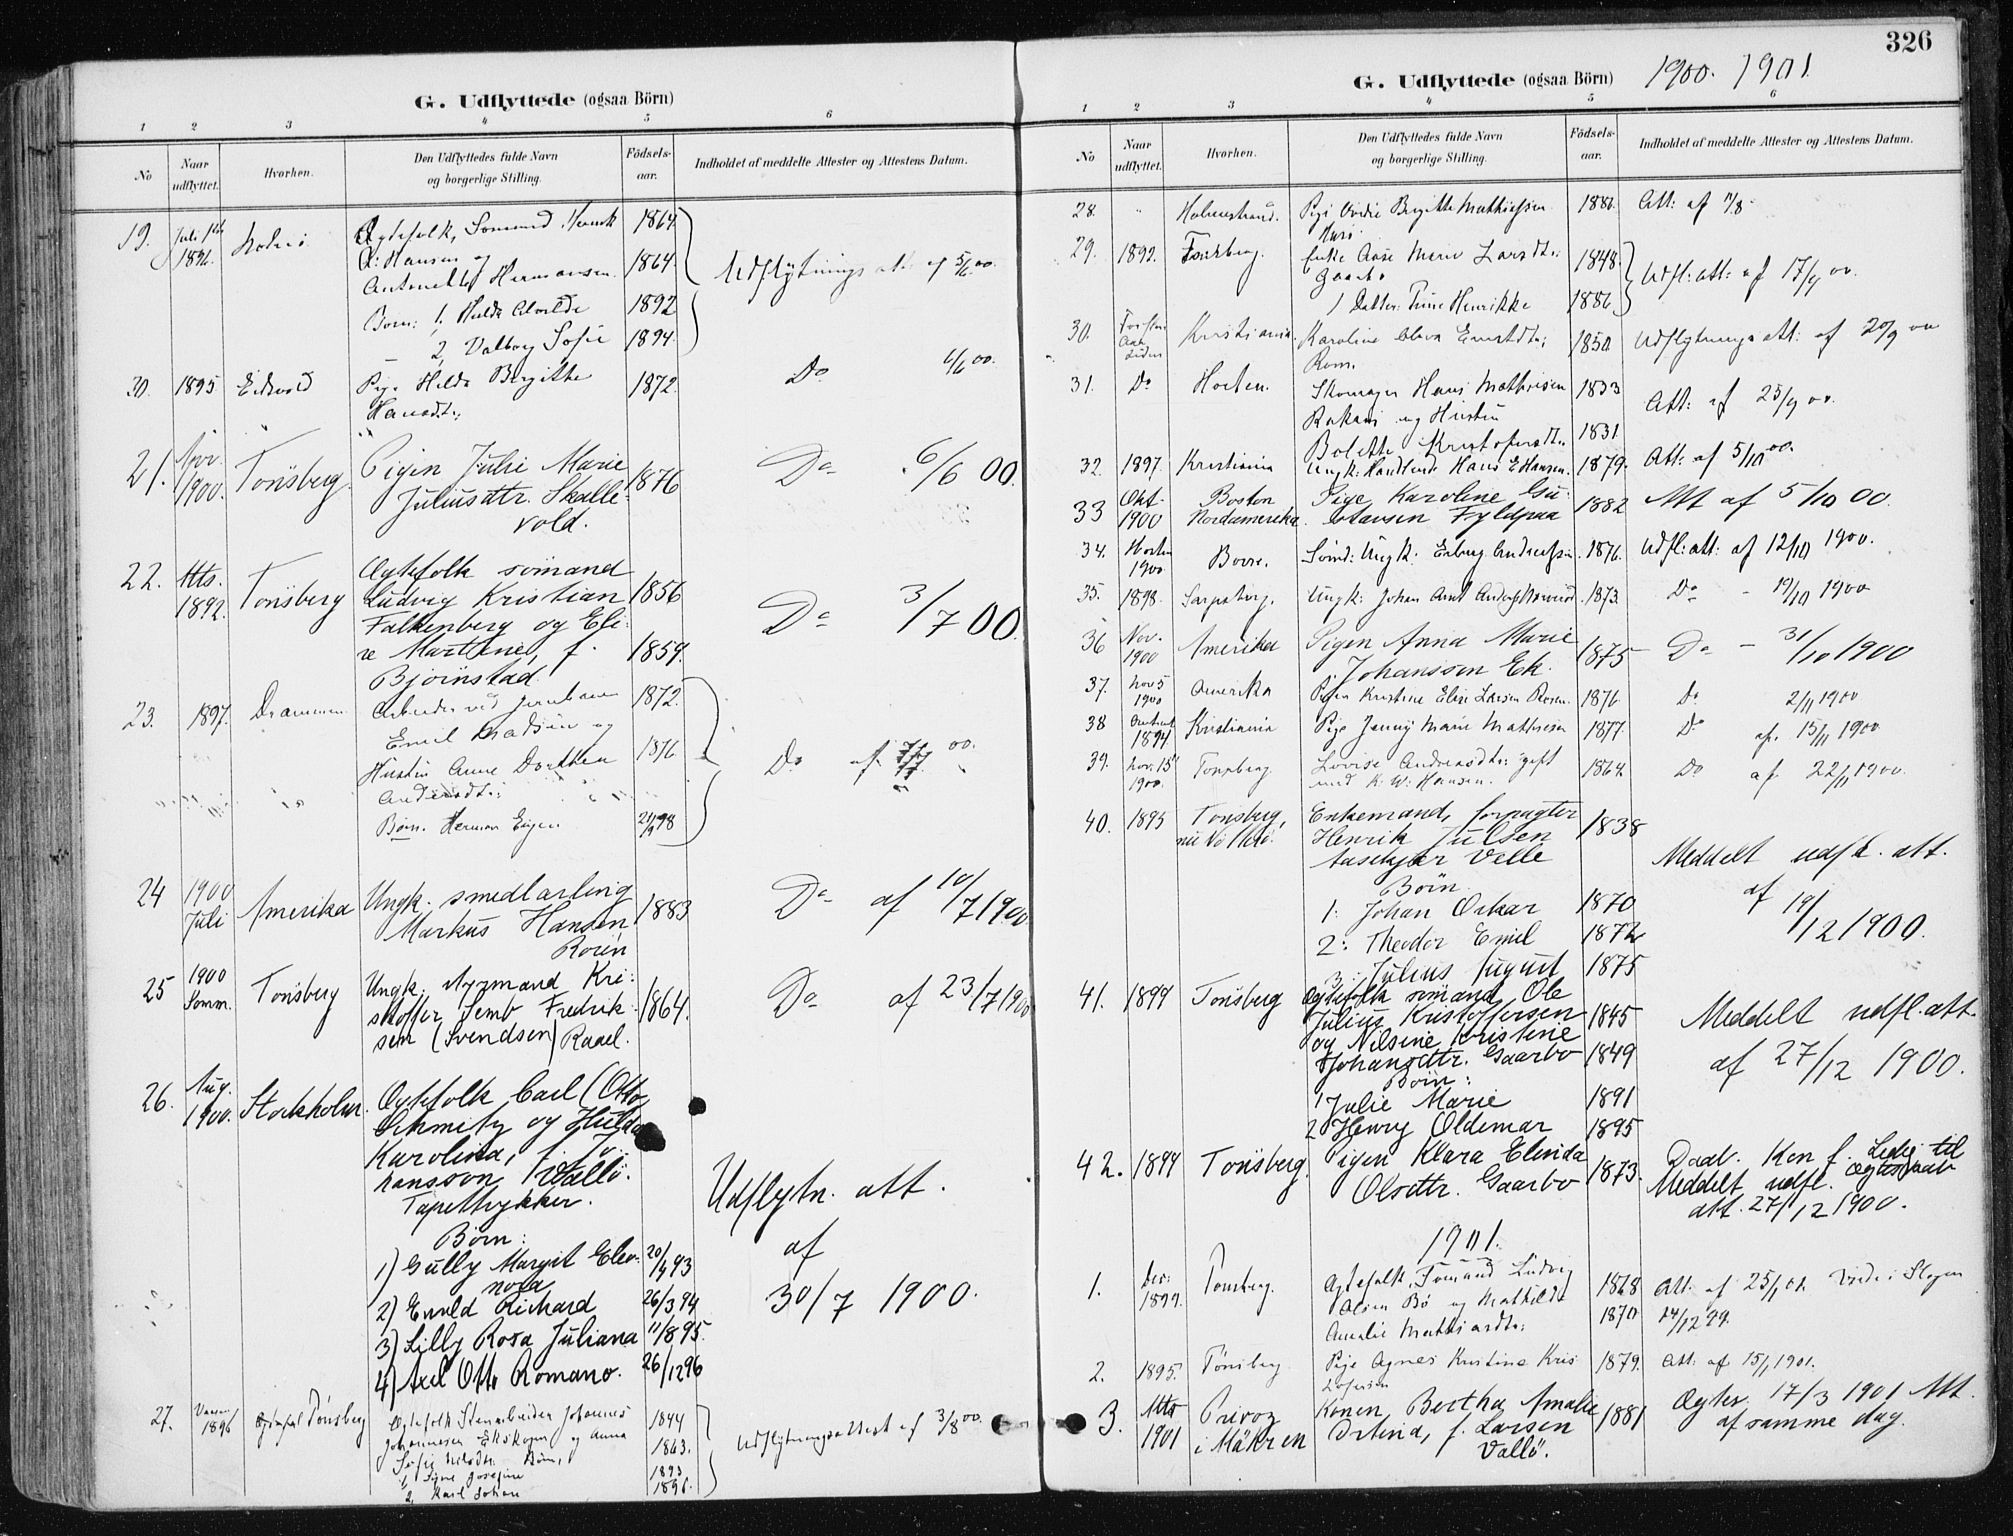 G. Udflyttede (ogsaa Börn)
1 2 3 4 5 6
No Naar udflyttet. Hvorhen. Den Udflyttedes fulde Navn og borgerlige Stilling. Födsels-aar. Indholdet af meddelte Attester og Attestens Datum.
19. Juli 1896. Ægtefolk, Sømand 1864.
Hansen og
Antonette Hermansen 1864. Udflytnings att. af 5/6 00.
Børn: 1, Hulda 1892
2, Valborg Sofie 1894.
30. 1895 Eidsvold Pige Hilda Birgitte 1872. Do 6/6 00.
Hansdt.
21. Apr. 1900. Tönsberg. Pigen Julie Marie 1876 Do 6/6 00.
Juliusdttr. Skalle-
vold.
22. Mts. 1892. Tönsberg Ægtefolk sömand
Ludvig Kristian 1856 Do 3/7 00.
Falkenberg og Eli-
se Martine, f. 1859.
Björnstad.
23. 1897. Drammen Arbeider ved Jernbanen 1872.
Emil Madsen og
Hustru Anne Dorthea 1876 Do af 7/7 00.
Andersdt.
Børn. Herman 98
24 1900 Juli Amerika Ungk. smedlærling 1883 Do af 10/7 1900
Markus Hansen
Roren
25 1900 Somm. Tönsberg Ungk. Kri-
stoffer Semb Fredrik- 1864. Do af 23/7 1900
sen (Svendsen) Raael.
26. Aug. 1900. Stockholm. Ægtefolk Carl (Otto)
Schmitz og Hulda
Karolina, f. Jo-
hansson, Vallö.
Tapettrykker. Udflytn. att.
Børn: af
1) Gully Margit Eleo- 93
nora
2) Evald Richard 26/3 94 30/7 1900.
3) Lilly Rosa Juliana 11/8 95.
4) Axel Otto Romano. 26/12 96
27. 1896 Tönsberg Ægtefolk Stenarbeider Johannes 1844
Johannesen Ekskogen og Anna 1863. Udflytningsattest af 3/8 00.
Sofie Nilsdtr. Børn,
1, Signe Josefine 1893
2, Karl Johan 1896.
326
G. Udflyttede (ogsaa Börn) 1900. 1901.
1 2 3 4 5 6
No Naar udflyttet. Hvorhen. Den Udflyttedes fulde Navn og borgerlige Stilling. Födsels-aar. Indholdet af meddelte Attester og Attestens Datum.
28. " Holmestrand. Pige Birgitte Mathiesen 1880. Att: af 11/8
29. 1892. Tönsberg. Enke Aase Marie Larsdt. 1848. Udfl: att: af 17/9 00.
Gaarbo
1 Datter: Trine Henrikke 1886
30. Kristiania. Karoline Ernstdt. 1850 Udflytnings att: af 20/9 00
Rom.
31. Do Horten. Skomager Hans Mathisen 1833 Att: af 25/9 00.
og Hustru
Bolette Kristofersdt. 1831
32. 1897. Kristiania Ungk: Handlende Hans E Hansen. 1879. Att: af 5/10 00.
33 Okt. 1900 Boston Nordamerika. Pige Karoline Gu- 1882 Att af 5/10 00.
stavsen Fyldpaa
34. 1900 Borre. Sømd: Ungk. Andreassen. 1876. Udfl: att: af 12/10 1900.
35. 1898. Sarpsborg. Ungk: Johan 1873. Do - 19/10 1900
36 Nov. 1900 Amerika Pigen Anna Marie 1875 Do - 31/10 1900
Johanssen Ek.
37. Nov 5 1900 Amerika Pigen Kristine Elise Larsen Roren. 1876. Do 2/11 1900
38 1894 Kristiania Pige Jenny Marie Mathisen 1877. Do af. 15/11 1900
39. Nov. 15 1900. Tønsberg Lovise Andreasdt: gift 1864. Do af 22/11 1900.
med K. W. Hansen.
40. 1895 Tönsberg, nu Nötterö. Enkemand, forpagter 1838
Henrik Julsen
Velle Meddelt udfl. att.
Börn
1. Johan Oskar 1870 af 19/12 1900.
2. Theodor Emil 1872
3. Julius August 1875
41. 1899 Tönsberg Ægtefolk sömand Ole
Julius Kristoffersen 1845 Meddelt udfl. att.
og Nilsine Kristine
Johansdttr. Gaarbo 1849 af 27/12 1900.
Börn:
1 Julie Marie 1891
2 Henry Oldemar 1895
42. 1899 Tönsberg. Pigen Klara Elinda 1873. Daab. Kon f. Ledig til
Olsdttr. Gaarbo Meddelt udfl. Ægteskab
att. 27/12 1900.
1901.
1. Dec: 1899. Tønsberg. Ægtefolk, Sømand Ludvig 1868 Att: af 25/1 01. Viede i Slagen
Olsen Bö og Mathilde 1870 24/12 99.
Amalie Mathiasdt.
2. 1895. Tønsberg. Pige Agnes Kristine Kris 1879. Att: af 15/1 1901.
tofersen
3. Mts 1901 Privoz i Mähren Konen Bertha Amalie 1881 Ægtev. 17/3 1901 Att.
f. Larsen af samme dag.
Vallö.